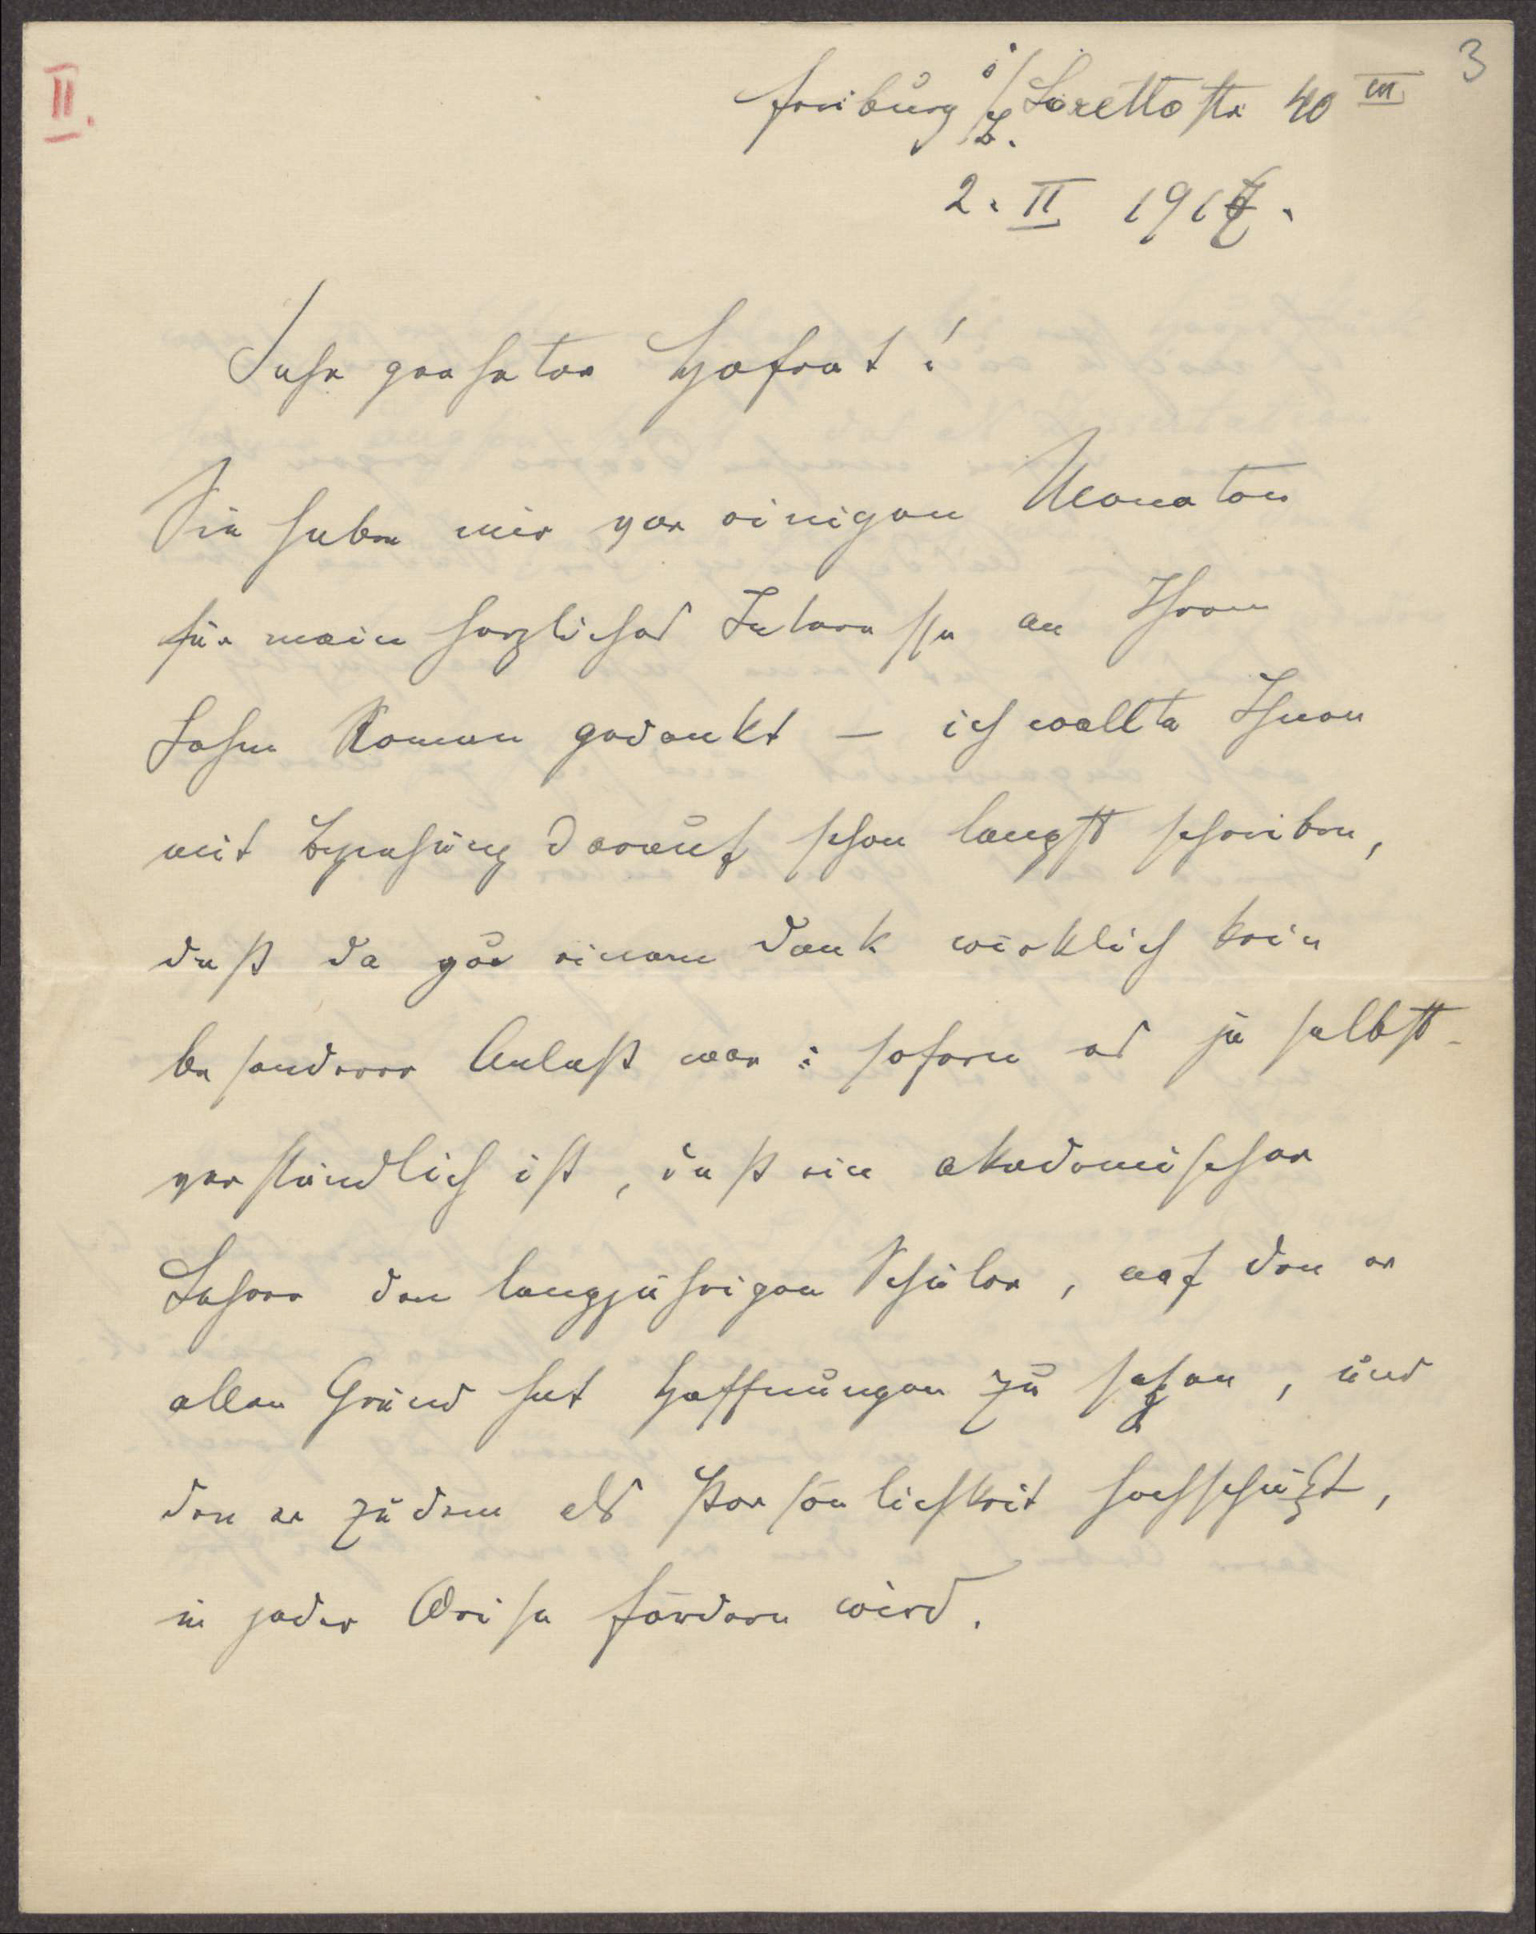 3
II.
Freiburg i/B. Lorettostr 40 III
2. II 1917.
Sehr geehrter Hofrat!
Sie haben mir vor einigen Monaten
für mein herzliches Interesse an Ihrem
Sohn Roman gedankt – ich wollte Ihnen
mit Beziehung darauf schon längst schreiben,
daß da zu einem Dank wirklich kein
besonderer Anlaß war: sofern es ja selbst-
verständlich ist, daß ein akademischer
Lehrer den langjährigen Schüler, auf den er
allen Grund hat Hoffnungen zu setzen, und
den er zudem als Persönlichkeit hochschätzt,
in jeder Weise fördern wird.